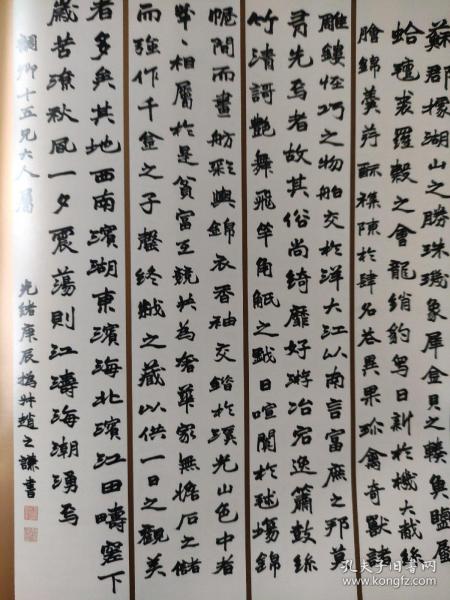 蘇郡據湖山之勝珠璣象犀金貝之輳魚鹽蜃
蛤氈裘羅縠之會龍綃豹舄日新於機大胾絲
膾錦羹荈酥襍陳於肆名花異果珍禽奇獸諸
雕鏤怪巧之物舶交於洋大江以南言富庶之邦莫
有先焉者故其俗尚綺靡好游冶宕逸簫鼓絲
竹清謌艷舞飛竿角觝之戲日喧闐於毬場錦
幄間而畫舫彩輿錦衣香袖交錯於湖光山色中者
相屬於是貧富互競以為奢華家無儋石之儲
而強作千金之子罄終歲之藏以供一日之觀美
者多矣其地西南濱湖東濱海北濱江田疇窪下
歲苦潦秋風一夕震蕩則江濤海潮湧焉
卿十五兄大人屬
光緒庚辰撝叔趙之謙書
孔子旧书网